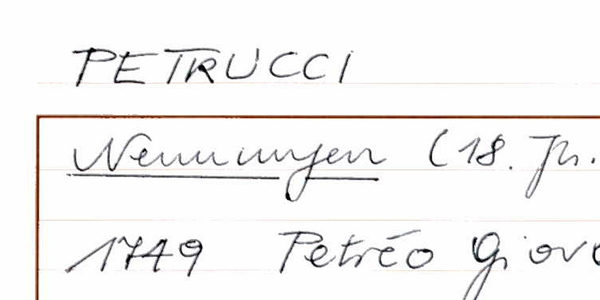 PETRUCCI
Nennungen (18. Jh.
1749 Petréo Giov